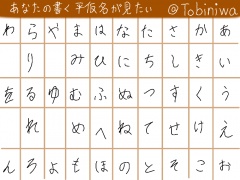 あなたの書く平仮名が見たい @Tobiniwa
わらやまはなたさかあ
り みひにちしきい
をるゆむふぬつすくう
れ めへねてせけえ
んろよもほのとそこお